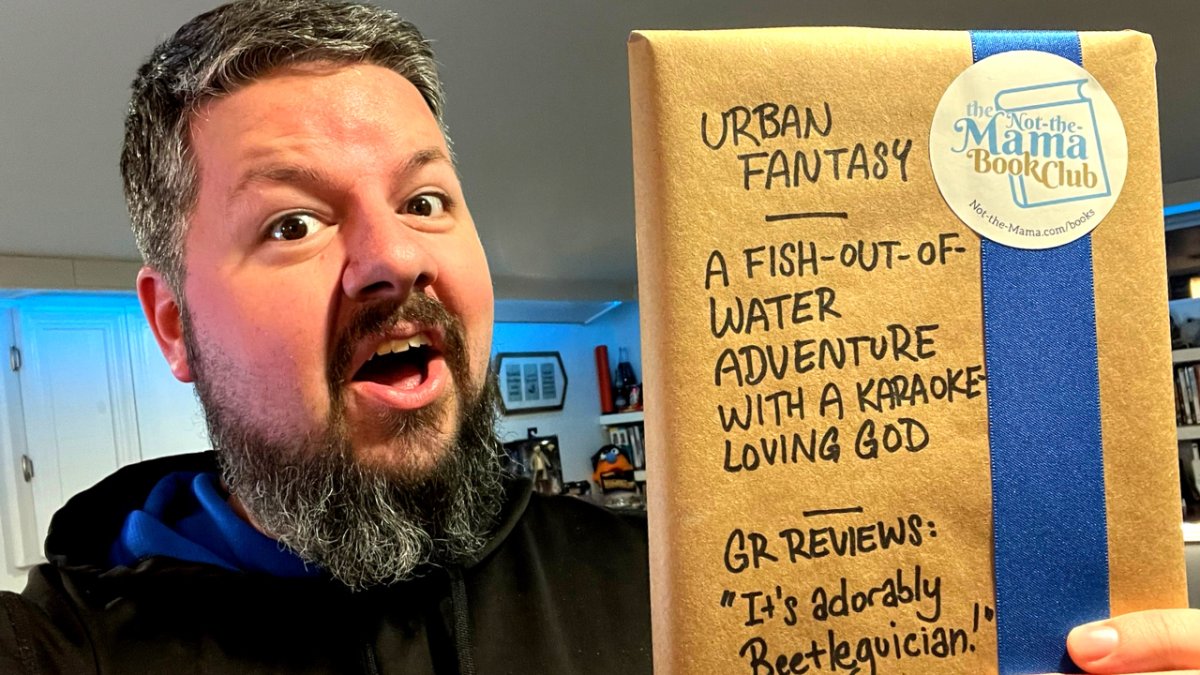 URBAN
FANTASY
A FISH-OUT-OF-
WATER
ADVENTURE
WITH A KARAOKE-
LOVING GOD
GR REVIEWS:
"It's adorably
Beetleguician!"
the
Not-the-
Mama
Book Club
Not-the-Mama.com/books